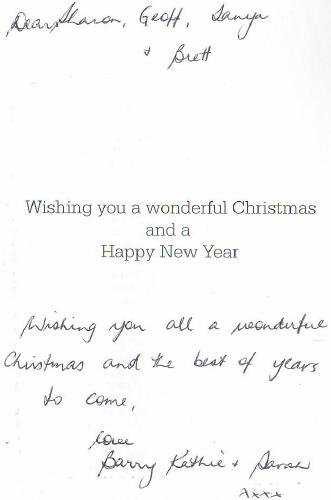 Dear Sharon, Geoff, Tanya
+ Brett
Wishing you a wonderful Christmas
and a
Happy New Year
Wishing you all a wonderful
Christmas and the best of years
to come,
love
Barry Kathie + Sarah
xxxx